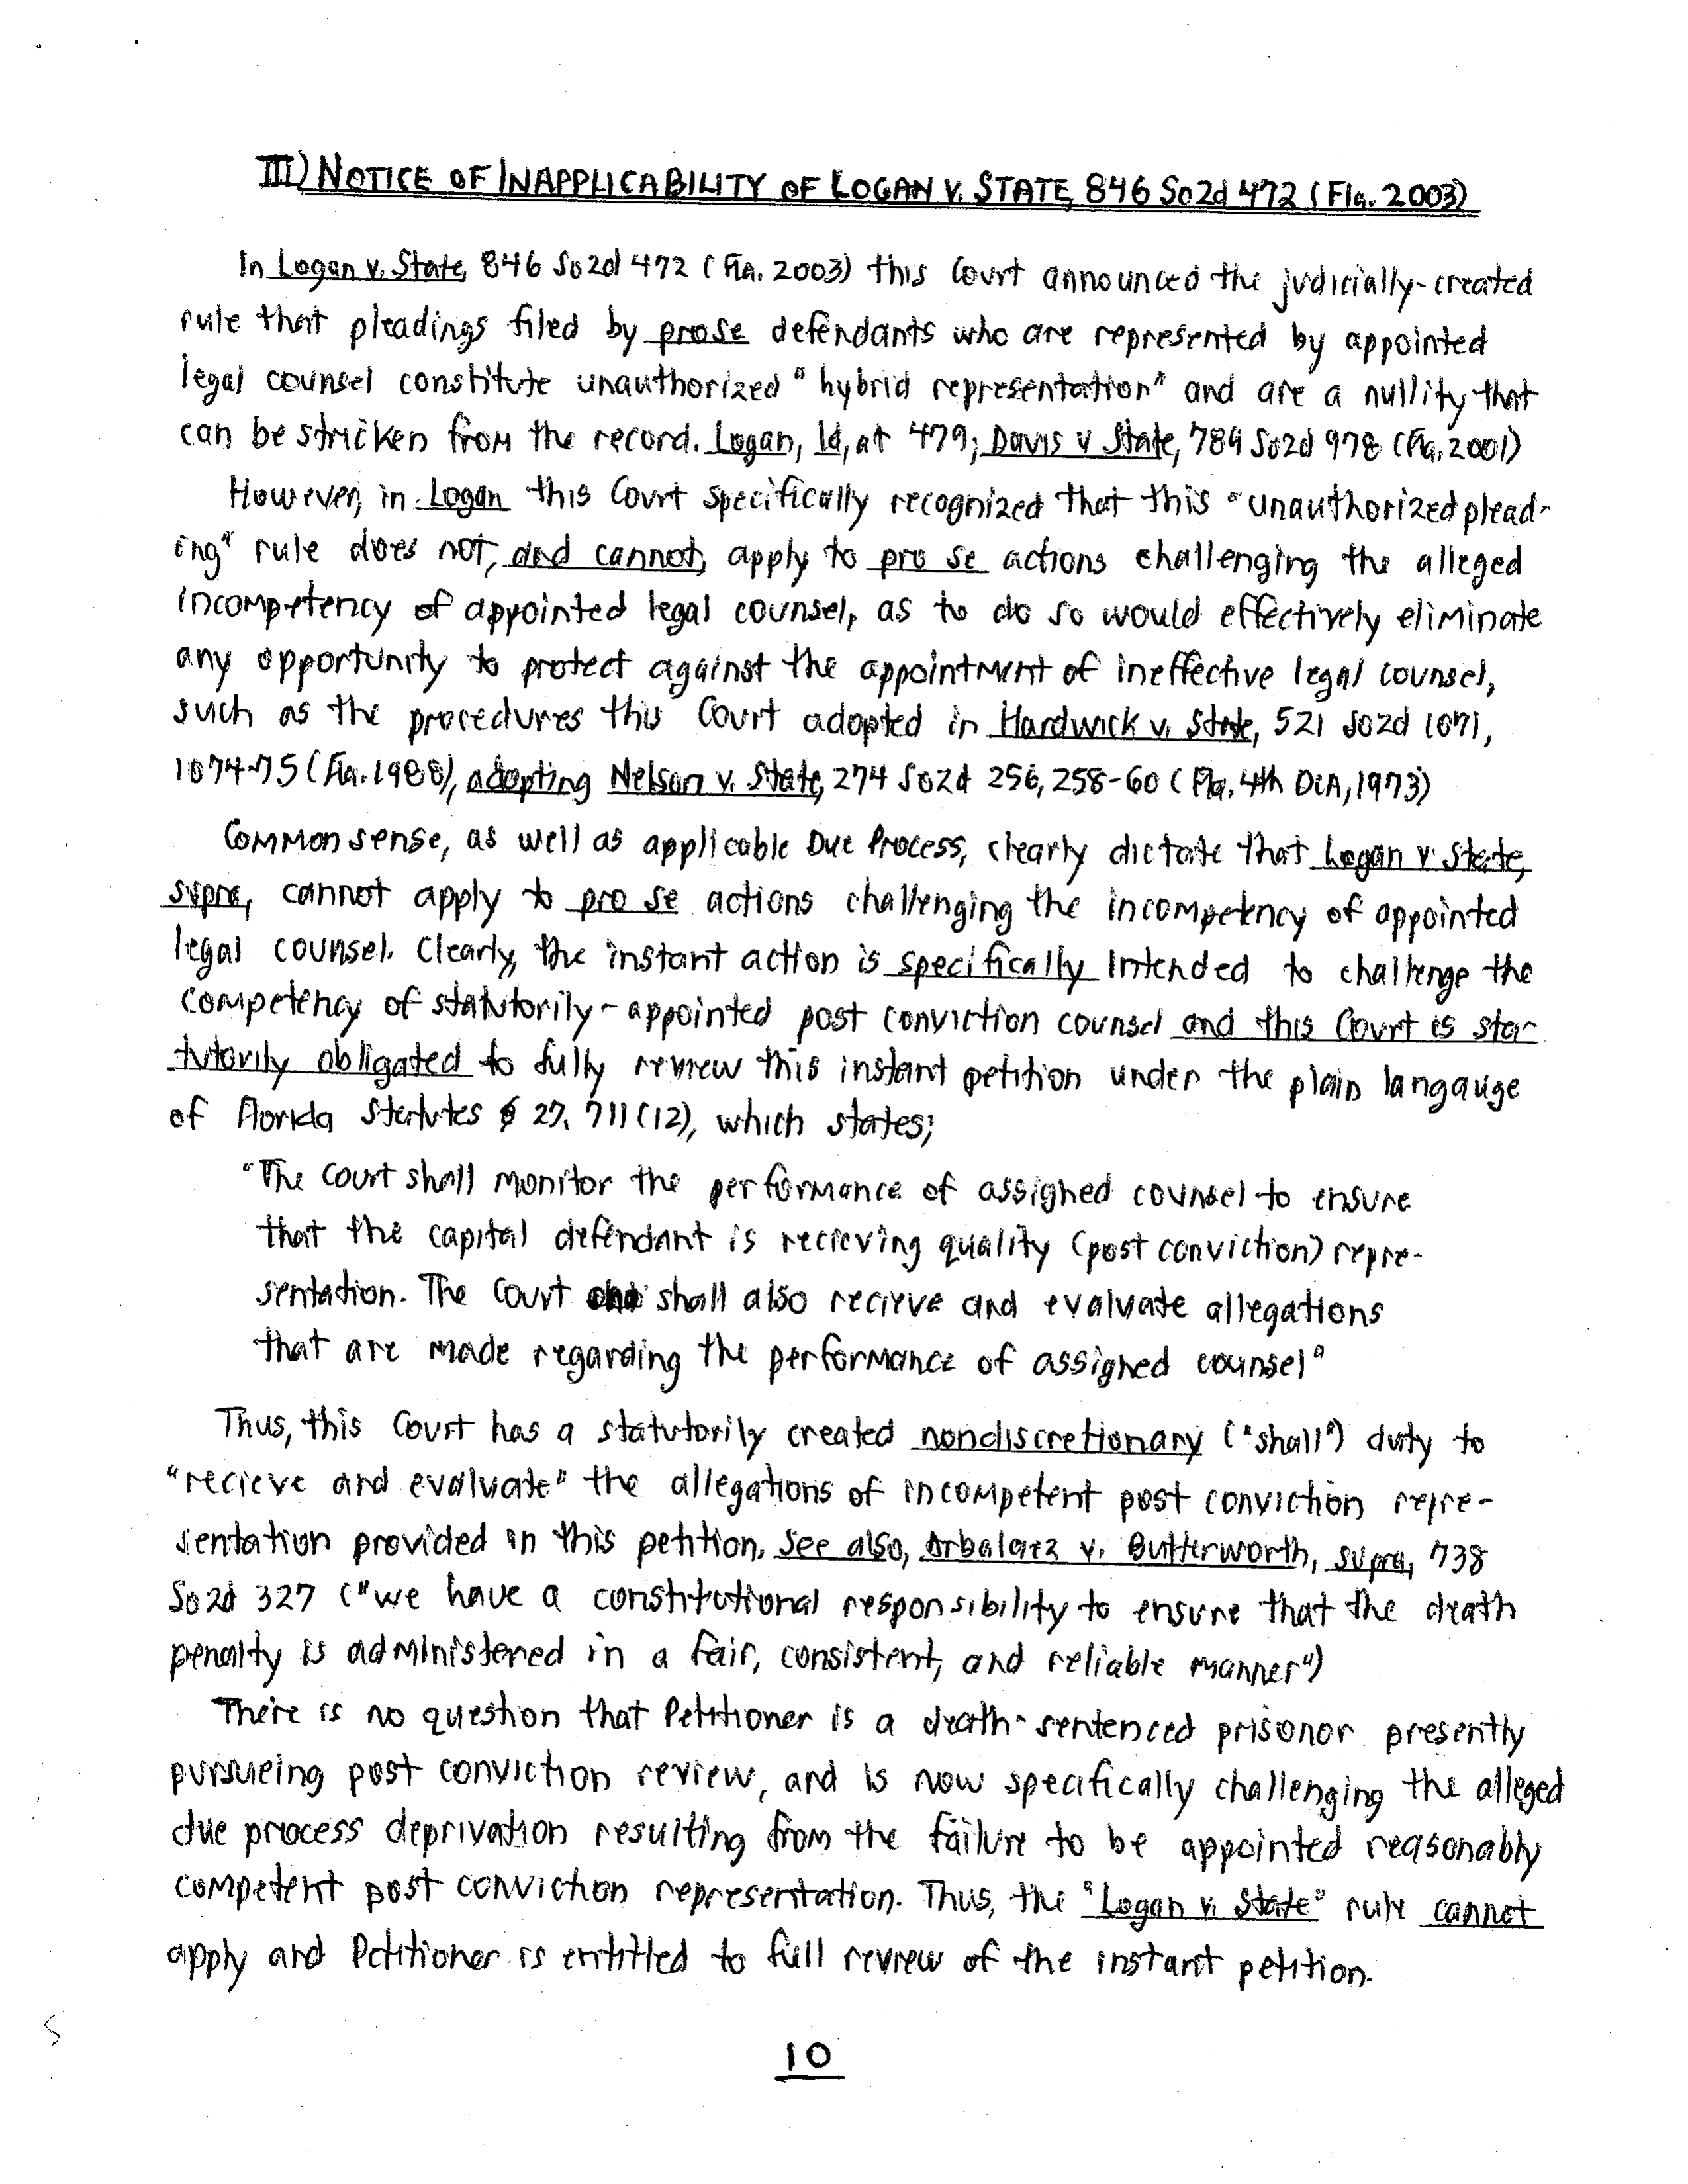 III) NOTICE OF INAPPLICABILITY OF LOGAN V. STATE, 846 So2d 472 (Fla. 2003)
In Logan v. State, 846 So2d 472 (Fla. 2003) this Court announced the judicially-created
rule that pleadings filed by prose defendants who are represented by appointed
legal counsel constitute unauthorized "hybrid representation" and are a nullity that
can be stricken from the record. Logan, Id, at 479; Davis v State, 789 So2d 978 (Fla, 2001)
However, in Logan this Court specifically recognized that this "unauthorized plead-
ing" rule does not, and cannot, apply to pro se actions challenging the alleged
incompetency of appointed legal counsel, as to do so would effectively eliminate
any opportunity to protect against the appointment of ineffective legal counsel,
such as the procedures this Court adopted in Hardwick v. State, 521 So2d 1071,
1074-75 (Fla. 1988), adopting Nelson v. State, 274 So2d 256, 258-60 (Fla. 4th DCA, 1973)
Common sense, as well as applicable Due Process, clearly dictate that Logan v State,
supra, cannot apply to pro se actions challenging the incompetency of appointed
legal counsel. Clearly, the instant action is specifically intended to challenge the
competency of statutorily-appointed post conviction counsel and this Court is sta-
tutorily obligated to fully review this instant petition under the plain langauge
of Florida Statutes § 27.711(12), which states;
"The Court shall monitor the performance of assigned counsel to ensure
that the capital defendant is recieving quality (post conviction) repre-
sentation. The Court shall also recieve and evaluate allegations
that are made regarding the performance of assigned counsel"
Thus, this Court has a statutorily created nondiscretionary ("shall") duty to
"recieve and evaluate" the allegations of incompetent post conviction repre-
sentation provided in this petition. See also, Arbalaez v. Butterworth, supra, 738
So2d 327 ("we have a constitutional responsibility to ensure that the death
penalty is administered in a fair, consistent, and reliable manner")
There is no question that Petitioner is a death-sentenced prisonor presently
pursueing post conviction review, and is now specifically challenging the alleged
due process deprivation resulting from the failure to be appointed reasonably
competent post conviction representation. Thus, the "Logan v. State" rule cannot
apply and Petitioner is entitled to full review of the instant petition.
10